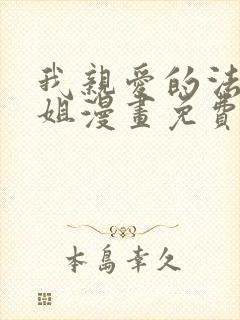 我親愛的法
姐漫畫免費
本島幸久